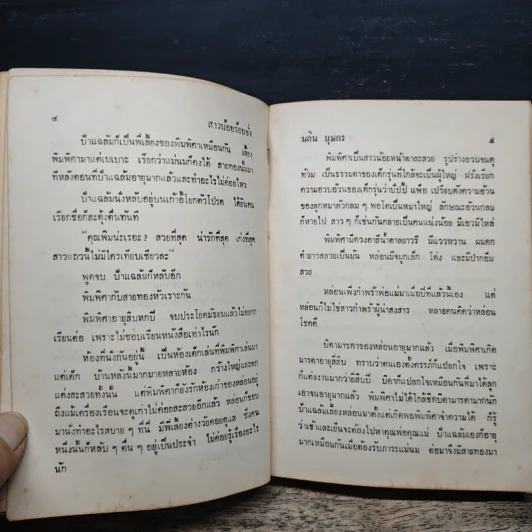 ๔
สาวน้อยร้อยชั่ง
ป้าแฉล้มก็เป็นพี่เลี้ยงของพิมพิศาเหมือนกัน เลี้ยง
พิมพิศามาแต่เบเบาะ เรียกว่าแม่นมก็คงได้ สายทองนั้นมา
ทีหลังตอนที่ป้าแฉล้มอายุมากแล้วและทำอะไรไม่ค่อยไหว
ป้าแฉล้มนั่งหลับอยู่บนเก้าอี้โยกตัวโปรด ได้ยินคน
เรียกชื่อก็สะดุ้งตื่นทันที
“คุณพิมน่ะเรอะ? สวยที่สุด น่ารักที่สุด เก่งที่สุด
สาวแถวนี้ไม่มีใครเทียบเชียวละ”
พูดจบ ป้าแฉล้มก็หลับอีก
พิมพิศากับสายทองหัวเราะกัน
พิมพิศาอายุสิบหกปี จบประโยคมัธยมแล้วไม่อยาก
เรียนต่อ เพราะไม่ชอบเรียนหนังสือเท่าไรนัก
ห้องที่นั่งกันอยู่นี้ เป็นห้องเด็กเล่นที่พิมพิศาเล่นมา
แต่เด็ก บ้านหลังนี้มากมายหลายห้อง กว้างใหญ่และตก
แต่งสะสวยทั้งนั้น แต่พิมพิศาก็ยังรักห้องเก่าของหล่อนอยู่
ถึงแม้เครื่องเรือนจะดูเก่าไม่ค่อยสะสวยอีกแล้ว หล่อนก็ชอบ
มานั่งทำอะไรสบาย ๆ ที่นี่ มีพี่เลี้ยงต่างวัยคอยดูแล ซึ่งคน
หนึ่งนั้นก็หลับ ๆ ตื่น ๆ อยู่เป็นประจำ ไม่ค่อยรู้เรื่องอะไร
นัก
นลิน บุษกร
๕
พิมพิศาเป็นสาวน้อยหน้าตาสะสวย รูปร่างอวบจนดู
ท้วม เป็นธรรมดาของเด็กรุ่นที่ใกล้จะเป็นผู้ใหญ่ ฝรั่งเรียก
ความอวบอ้วนของเด็กรุ่นว่าปั๊ปปี้ แฟ็ต เปรียบดังความอ้วน
ของลูกหมาตัวกลม ๆ พอโตเป็นหมาใหญ่ ลักษณะอ้วนกลม
ก็หายไป สาว ๆ ก็เช่นกันกลายเป็นคนแน่งน้อย มีเอวมีไหล่
พิมพิศามีดวงตาสีน้ำตาลยาวรี มีแววหวาน ผมดก
ดำยาวสลวยเป็นมัน หล่อนมีจมูกเล็ก โด่ง และมีปากอิ่ม
สวย
หล่อนเพิ่งกำพร้าพ่อแม่มาเมื่อปีที่แล้วนี้เอง แต่
หล่อนก็ไม่ใช่สาวกำพร้าผู้น่าสงสาร หลายคนคิดว่าหล่อน
โชคดี
บิดามารดาของหล่อนอายุมากแล้ว เมื่อพิมพิศาเกิด
มารดาอายุสี่สิบ ทราบว่าตนเองตั้งครรภ์ก็แปลกใจ เพราะ
ก็แต่งงานมากว่าสิบปี บิดาก็แปลกใจเหมือนกันที่มาได้ลูก
เอาจนอายุมากแล้ว พิมพิศาไม่ได้ใกล้ชิดกับมารดามากนัก
ป้าแฉล้มเลี้ยงหล่อนมาตั้งแต่เกิดพอพิมพิศาจำความได้ ก็รู้
ว่าเช้าและเย็นจะต้องไปหาคุณพ่อคุณแม่ ป้าแฉล้มเองก็อายุ
มากเหมือนกันเมื่อต้องรับภาระแม่นม ต่อมาจึงมีสายทองมา